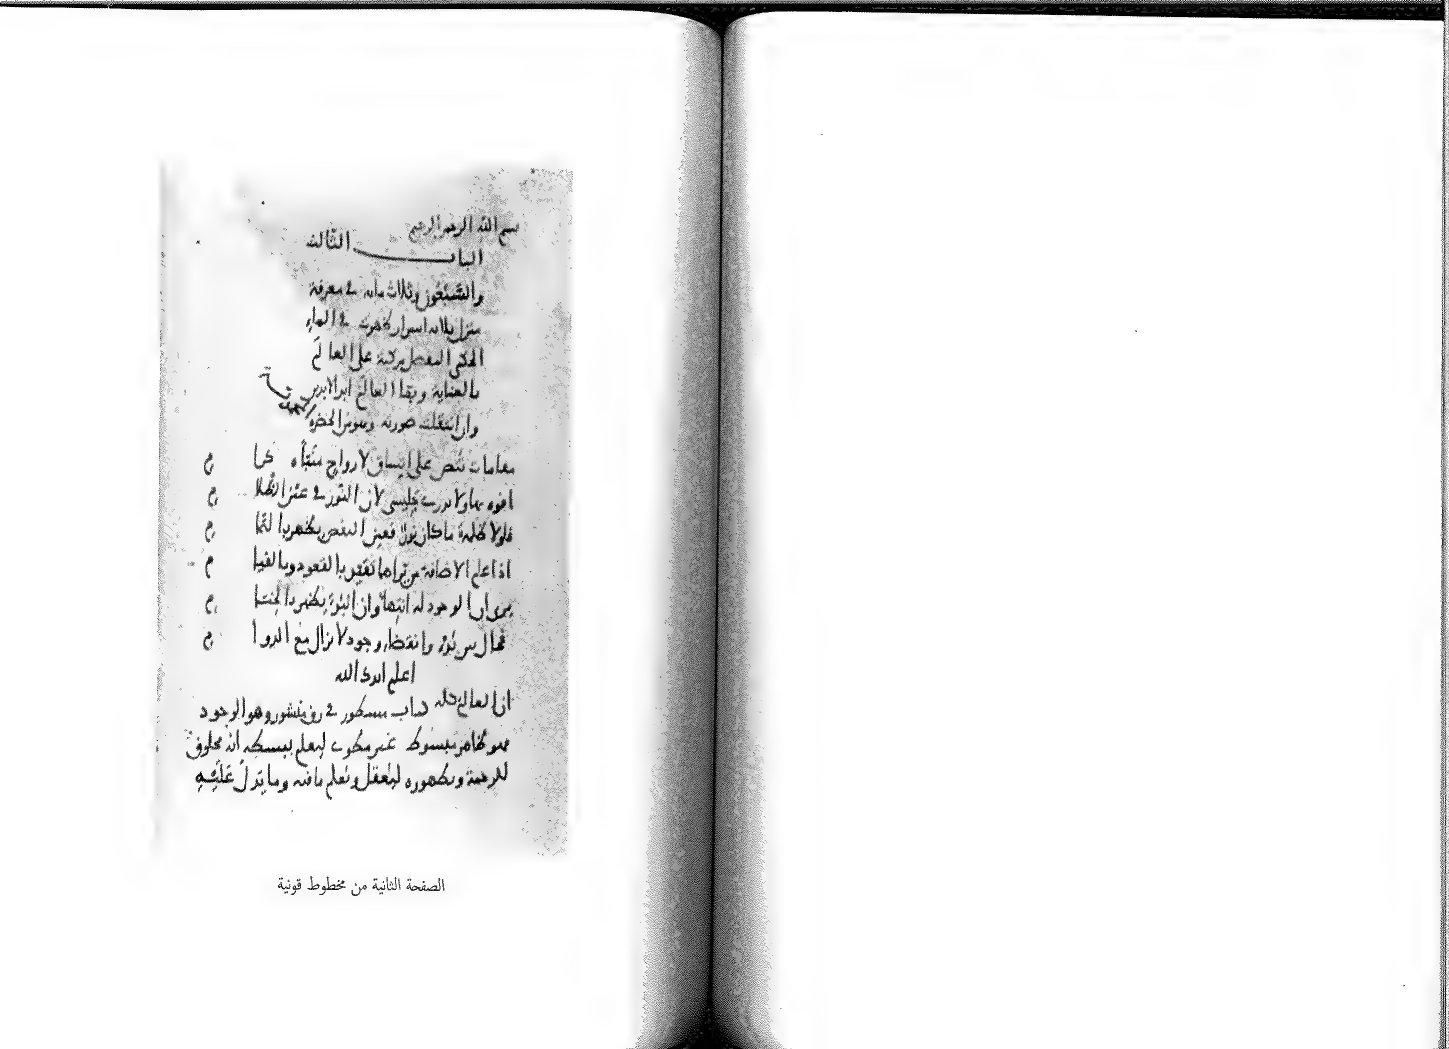 بسم الله الرحمن الرحيم
الباب الثالث
والسبعون وثلاث مائة في معرفة
منزل ثلاثة اسرار ظهرت في الماء
الحكمي المفصل مرتبة على العالم
بالعناية وبقا العالم ابد الابدين
وان انتقلت صورته وهو من الحضرة
المحمدية
مقامات تنص على اتساق لارواح منبأه كرا م
افوه بها ولا يدري جليسي لان النور في عين الظلا م
فلولا ظلمة ما كان نور فعين النقص يظهر بالتما م
اذا علم الاضافة من يراها تقيد بالقعود وبالقيا م
يرى ان الوجود له انتهاء وان البدء يظهر بالختا م
فحال بين بدء وانقضاء وجود لا يزال مع الدوا م
اعلم ايدك الله
ان العالم كله كتاب مسطور في رق منشور وهو الوجود
فهو ظاهر مبسوط غير مطوي ليعلم ببسطه انه مخلوق
للرحمة وبظهوره ليعقل ويعلم ما فيه وما يدل عليه
الصفحة الثانية من مخطوط قونية